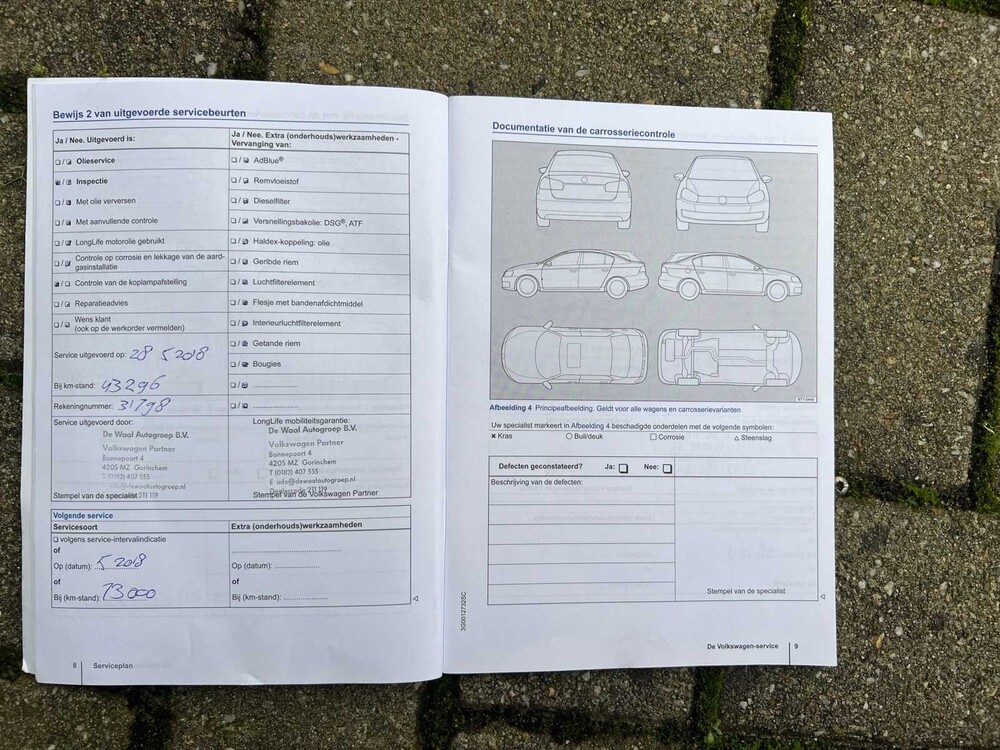 Bewijs 2 van uitgevoerde servicebeurten
Ja / Nee. Uitgevoerd is:
Olieservice
Inspectie
Met olie verversen
Met aanvullende controle
LongLife motorolie gebruikt
Controle op corrosie en lekkage van de aard-
gasinstallatie
Controle van de koplampafstelling
Reparatieadvies
Wens klant
(ook op de werkorder vermelden)
Service uitgevoerd op: 28 5 2018
Bij km-stand: 43296
Rekeningnummer: 31798
Service uitgevoerd door:
De Waal Autogroep B.V.
Volkswagen Partner
Bannepoort 4
4205 MZ Gorinchem
T (0183) 407 555
info@dewaalautogroep.nl
Stempel van de specialist 211 119
Ja / Nee. Extra (onderhouds)werkzaamheden -
Vervanging van:
AdBlue®
Remvloeistof
Dieselfilter
Versnellingsbakolie: DSG®, ATF
Haldex-koppeling: olie
Geribde riem
Luchtfilterelement
Flesje met bandenafdichtmiddel
Interieurluchtfilterelement
Getande riem
Bougies
LongLife mobiliteitsgarantie:
De Waal Autogroep B.V.
Volkswagen Partner
Bannepoort 4
4205 MZ Gorinchem
T (0183) 407 555
E info@dewaalautogroep.nl
Dealercode 211 119
Stempel van de Volkswagen Partner
Volgende service
Servicesoort
volgens service-intervalindicatie
of
Op (datum): 5 2018
of
Bij (km-stand): 73000
Extra (onderhouds)werkzaamheden
Op (datum):
of
Bij (km-stand):
8 Serviceplan
Documentatie van de carrosseriecontrole
Afbeelding 4 Principeafbeelding. Geldt voor alle wagens en carrosserievarianten
Uw specialist markeert in Afbeelding 4 beschadigde onderdelen met de volgende symbolen:
× Kras ○ Buil/deuk □ Corrosie △ Steenslag
Defecten geconstateerd? Ja: Nee:
Beschrijving van de defecten:
Stempel van de specialist
3G0012732SC
De Volkswagen-service 9